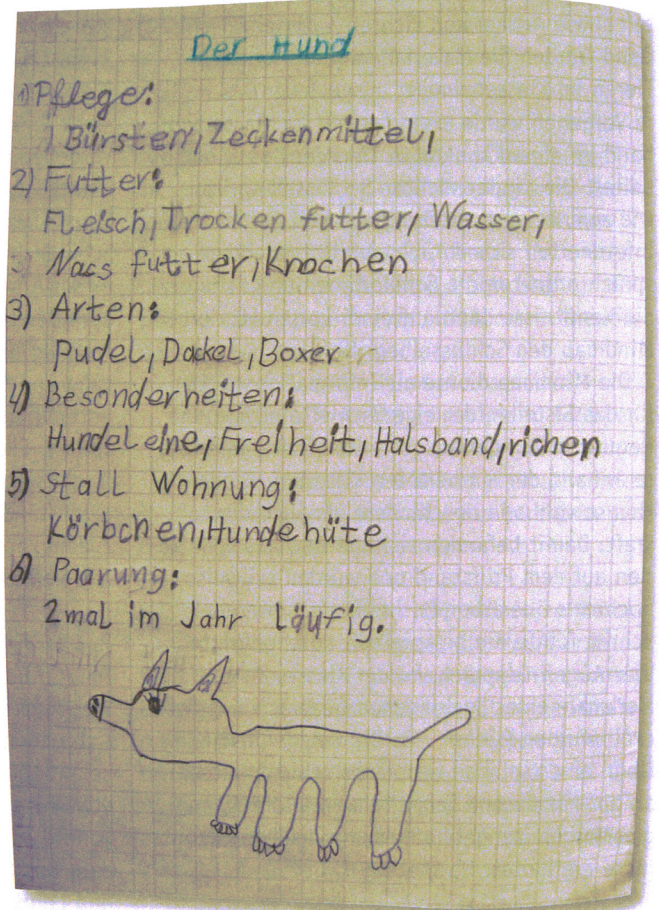 Der Hund
1) Pflege:
Bürsten, Zeckenmittel,
2) Futter:
Fleisch, Trocken futter, Wasser,
Nacs futter, Knochen
3) Arten:
Pudel, Dackel, Boxer
4) Besonderheiten:
Hundeleine, Freiheit, Halsband, richen
5) Stall Wohnung:
Körbchen, Hundehüte
6) Paarung:
2mal im Jahr Läufig.